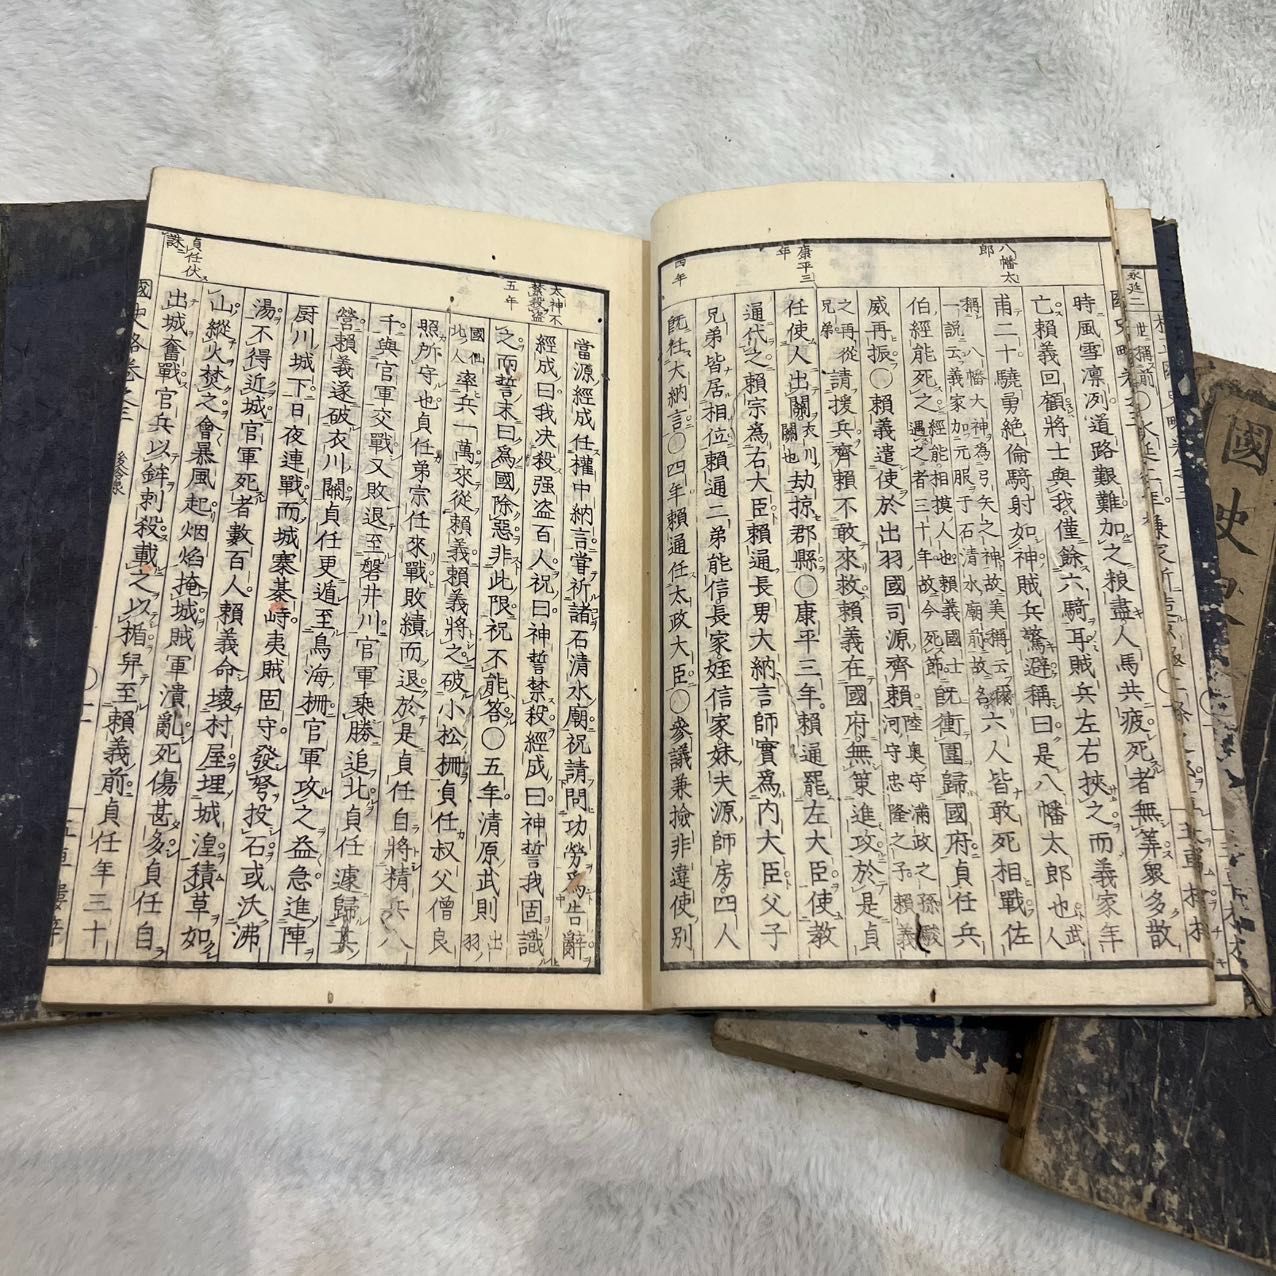 八幡太郎
康平三年
四年
時風雪凛冽道路艱難加之粮盡人馬共疲死者無筭衆多散
亡賴義回顧將士與我僅餘六騎耳賊兵左右挾之而義家年
甫二十驍勇絶倫騎射如神賊兵驚避稱曰是八幡太郎也武人
稱八幡大神為弓矢之神故美稱云爾
一說云義家加元服于石清水廟前故名
六人皆敢死相戰佐
伯經能死之
經能相摸人也賴義國士
遇之者三十年故今死節
既衝圍歸國府貞任兵
威再振〇賴義遣使於出羽國司源齊賴
河守忠隆之子賴義
陸奥守滿政之孫駿
之再從兄弟
請援兵齊賴不敢來救賴義在國府無策進攻於是貞
任使人出關
衣川關也
劫掠郡縣〇康平三年賴通罷左大臣使教
通代之賴宗為右大臣賴通長男大納言師實爲内大臣父子
兄弟皆居相位賴通二弟能信長家姪信家妹夫源師房四人
既杜大納言〇四年賴通任太政大臣〇參議兼撿非違使別
太神不禁殺盜
五年
貞任伏誅
當源經成任權中納言嘗祈諸石清水廟祝請問功勞爲告辭
經成曰我决殺强盜百人祝曰神誓禁殺經成曰神誓我固識
之而誓末曰爲國除惡非此限祝不能答〇五年清原武則
出羽國仙北人
率兵一萬來從賴義賴義將之破小松柵
貞任叔父僧良照所守也
貞任弟宗任來戰敗績而退於是貞任自將精兵八
千與官軍交戰又敗退至磐井川官軍乘勝追北貞任遽歸其
營賴義遂破衣川關貞任更遁至鳥海柵官軍攻之益急進陣
厨川城下日夜連戰而城寨碁峙夷賊固守發弩投石或沃沸
湯不得近城官軍死者數百人賴義命壞村屋埋城湟積草如
山縱火焚之會暴風起烟焰掩城賊軍潰亂死傷甚多貞任自
出城奮戰官兵以鉾刺殺載之以楯舁至賴義前貞任年三十
國史略卷之三
國史